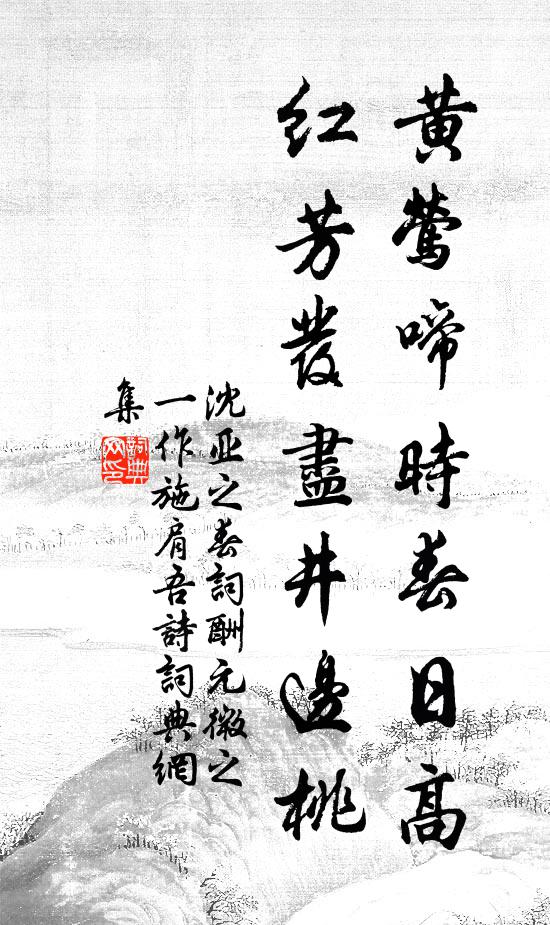 黄鶯啼時春日高
紅芳發盡井邊桃
沈亚之春詞酬元微之
一作施肩吾詩詞典網
集
詞典
网印